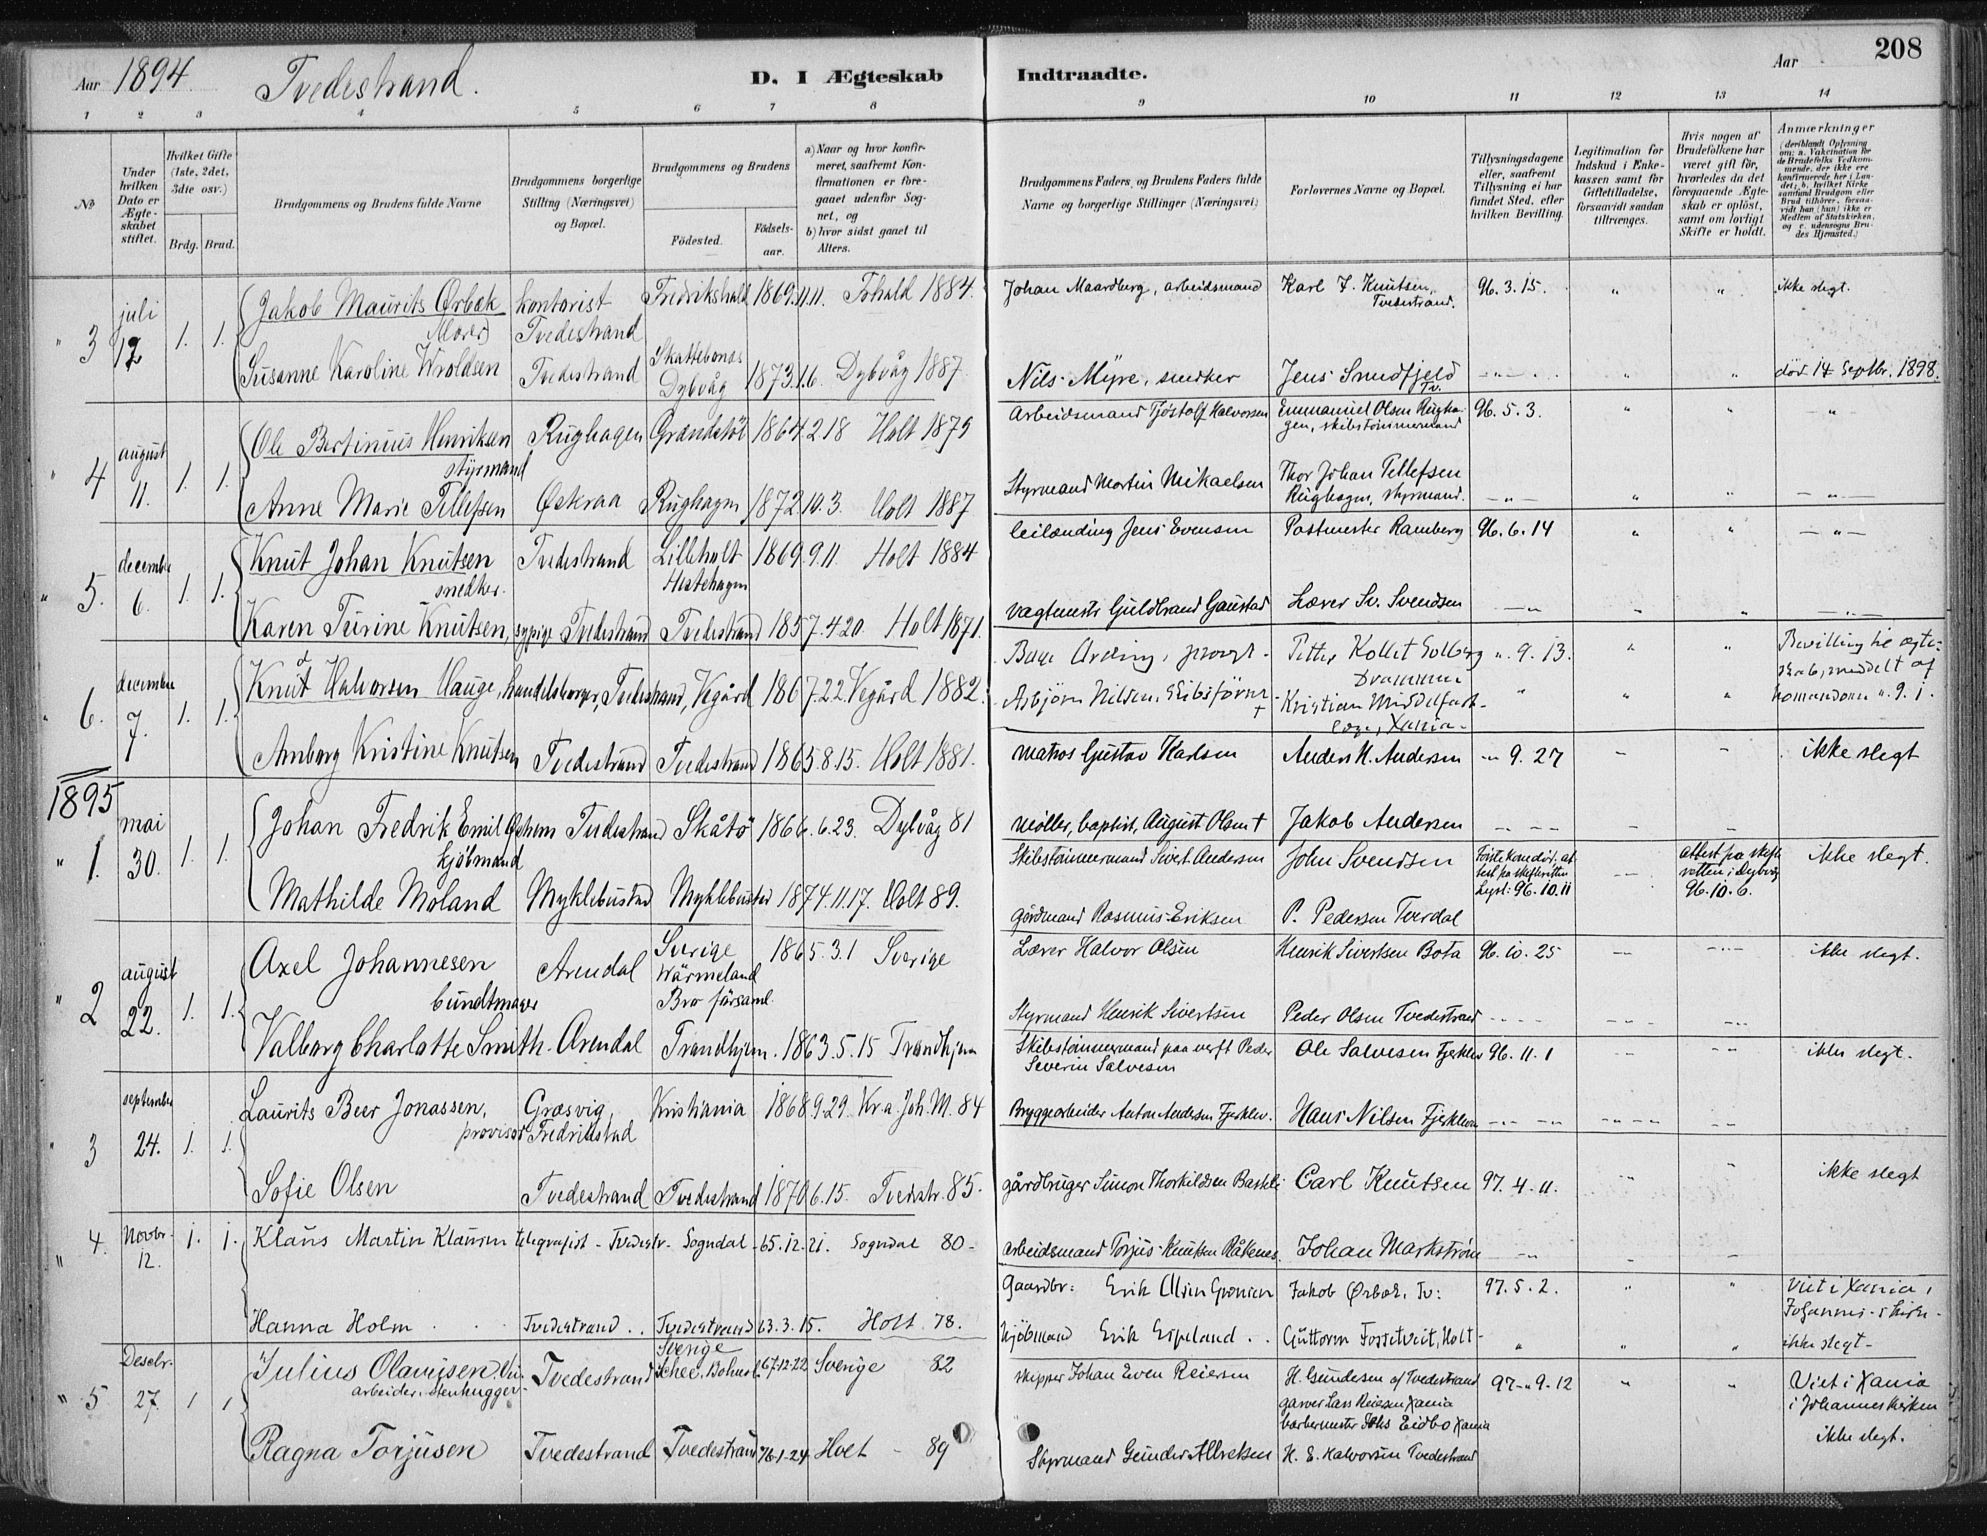 208
Aar 1894 Tvedestrand. D. I Ægteskab Indtraadte. Aar
1 2 3 4 5 6 7 8 9 10 11 12 13 14
No
Under hvilken Dato er Ægteskabet stiftet.
Hvilket Gifte (1ste, 2det, 3die osv.)
Brdg. Brud.
Brudgommens og Brudens fulde Navne
Brudgommens borgerlige Stilling (Næringsvei) og Bopæl.
Brudgommens og Brudens
Fødested. Fødselsaar.
a) Naar og hvor konfirmeret, saafremt Konfirmationen er foregaaet udenfor Sognet, og
b) hvor sidst gaaet til Alters.
Brudgommens Faders og Brudens Faders fulde Navne og borgerlige Stillinger (Næringsvei)
Forlovernes Navne og Bopæl.
Tillysningsdagene eller, saafremt Tillysning ei har fundet Sted, efter hvilken Bevilling.
Legitimation for Indskud i Enkekassen samt for Giftetilladelse, forsaavidt saadan tiltrænges.
Hvis nogen af Brudefolkene har været gift før, hvorledes da det foregaaende Ægteskab er opløst, samt om lovligt Skifte er holdt.
Anmærkninger (deriblandt Oplysning om: a. Vakcination for de Brudefolks Vedkommende, der ikke ere konfirmerede her i Landet; b. hvilket Kirkesamfund Brudgom eller Brud tilhører, forsaavidt han (hun) ikke er Medlem af Statskirken, og c. udensogns Brudes Hjemsted.)
" 3 juli 12 1. 1. Jakob Maurits Ørbæk kontorist Tvedestrand Fredrikshald 1869.11.11. Fr.hald 1884.
Susanne Karoline Wroldsen Tvedestrand Dybvåg 1873.1.6. Dybvåg 1887.
" 4 august 11. 1. 1. Ole Bertinius Henriksen styrmand Rughagen Grændstöl 1864.2.18 Holt 1879
Anne Marie Tellefsen Øskraa Rughagen 1872.10.3. Holt 1887
" 5. december 6. 1. 1. Knut Johan Knutsen snedker. Tvedestrand Lilleholt Hestehagen 1869.9.11 Holt 1884
Karen Turine Knutsen, sypige Tvedestrand Tvedestrand 1857.4.20. Holt 1871.
" 6. december 7. 1. 1. Knut Halvorsen Hauge, handelsborger, Tvedestrand, Vegård 1867.2.2 Vegård 1882.
Amborg Kristine Knutsen Tvedestrand Tvedestrand 1865.8.15. Holt 1881.
1895
" 1. mai 30. 1. 1. Johan Fredrik Emil kjøbmand Tvedestrand Skåtö 1866.6.23. Dybvåg 81
Mathilde Moland Myklebustad Myklebustad 1874.11.17. Holt 89.
" 2 august 22. 1. 1. Axel Johannesen bundtmager Arendal Sverige Wärmeland Bro församl. 1865.3.1 Sverige
Valborg Charlotte Smith. Arendal Trondhjem. 1863.5.15 Trondhjem
" 3 september 24. 1. 1. Laurits Beer Jonassen, provisor Græsvig, Fredrikstad Kristiania 1868.9.29. Kr.a. Joh. M. 84
Sofie Olsen Tvedestrand Tvedestrand 1870.6.15. Tvedstr. 85.
" 4. Novbr. 12. 1. 1. Klaus Martin Klausen telegrafist - Tvedestr. Sogndal 65.12.21. Sogndal 80 -
Hanna Holm Tvedestrand.. Tvedestrand 63.3.15. Holt 78.
" 5 Decbr. 27. 1 1 Julius Olausen arbeider, stenhugger. Tvedestrand Sverige 67.12.22 Sverige 82
Ragna Torjusen Tvedestrand Tvedestrand 76.1.24 Holt - 89
Johan Maardberg, arbeidsmand Karl J. Knutsen, Tvedestrand. 96.3.15. " " ikke slegt.
Nils Myre, snedker Jens Smedfjeld Tv. -"-. " " død 14 Septbr. 1898.
Arbeidsmand Tjøstolf Halvorsen Emmanuel Olsen Rughagen, skibstømmermand 96.5.3. " " "
Styrmand Martin Mikaelsen Thor Johan Tellefsen Rughagen, styrmand. -"- " " -"-
leilænding Jens Evensen Postmester Ramberg 96.6.14 " " -"-
Vagtmestr Guldbrand Gaustad Lærer Sv. Svendsen -"- " " -"-
Petter Kollet Solberg Drammen ". 9.13. " " Bevilling til ægteskab, meddelt af
Asbjörn Nilsen, Skibsförer † Kristian " " " 9.1.
Matros Gustav Karlsen Anders K. Andersen -"- 9.27 - - ikke slegt
Møller, baptist, August Olsen † Jakob Andersen
Skibstømmermand Sivert Andersen John Svendsen 96.10.11 96.10.6. ikke slegt.
gårdmand Rasmus Eriksen P. Pedersen Tverdal
Lærer Halvor Olsen Henrik Sivertsen Bota 96.10.25 ikke slegt.
Styrmand Henrik Sivertsen Peder Olsen Tvedestrand
Skibstømmermand paa verft Peder Severin Salvesen Ole Salvesen Fjerkleiv 96.11.1 ikke slegt.
Bryggearbeider Anton Andersen Fjerkleiv. Hans Nilsen Fjerkleiv
gårdbruger Simon Thorkildsen Carl Knutsen 97.4.11. " " ikke slegt
arbeidsmand Torjus Knutsen Råkenes. Johan Markstrøm -"- - -
Gaardbr: Erik Olsen Jakob Ørbæk. Tv: 97.5.2. " " Viet i Xania, Johannes-kirke-
Kjøbmand Erik Espeland.. Guttorm Fossetveit, Holt - " " " ikke slegt -
skipper Johan Even Reiersen H. Gundesen af Tvedestrand 97-"-9.12 " " Viet i Xania i Johanneskirken
garver Lars Reiersen Xania
barbermester Eidbo Xania ikke slegt.
Styrmand Gunder Albretsen H. E. Halvorsen Tvedestrand